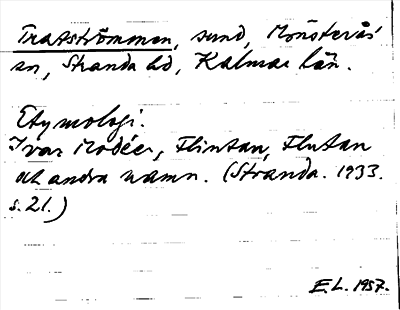 Tratströmmen, sund, Mönsterås
sn, Stranda hd, Kalmar län.
Etymologi.
Ivar Modéer, Flintan, Flutan
och andra namn. (Stranda. 1933.
s. 21.)
E.L. 1957.